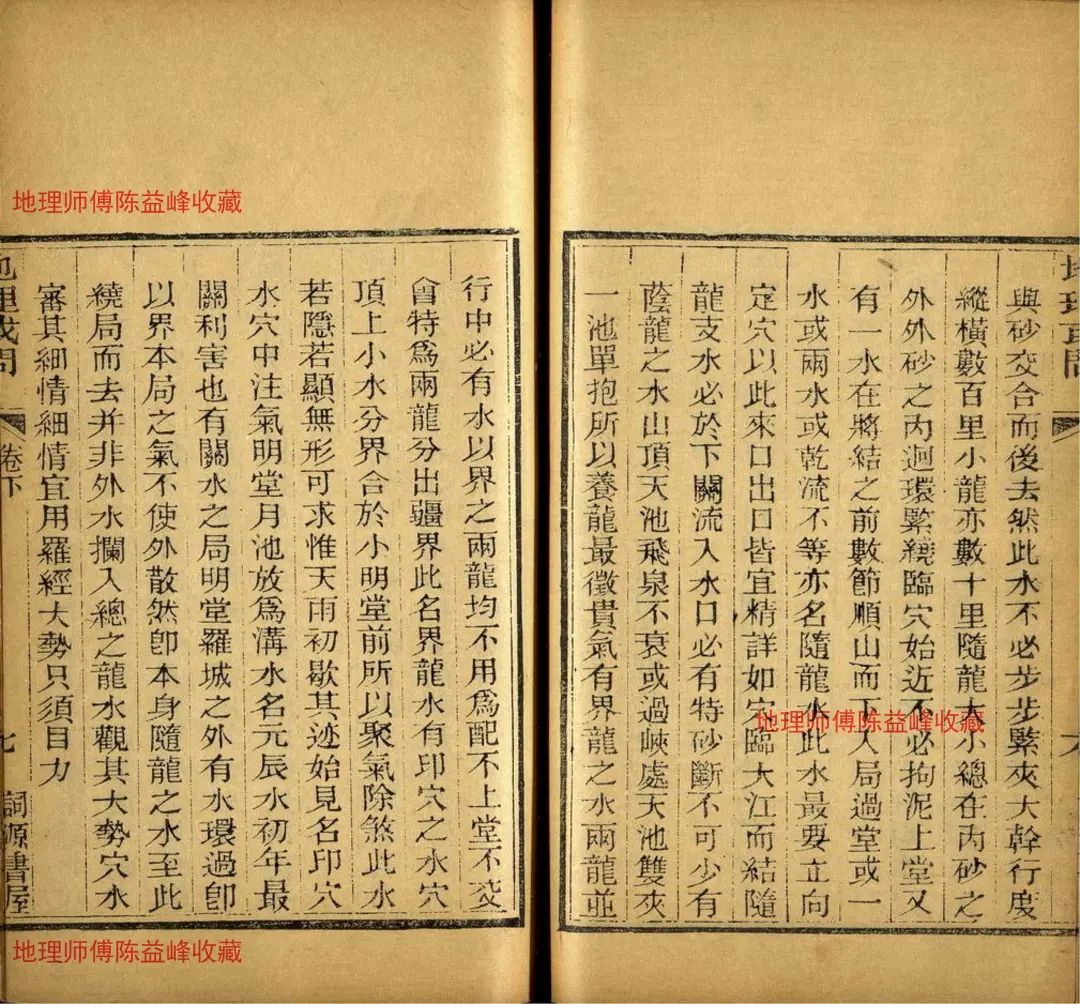 地理或問
六
與砂交合而後去然此水不必步步緊夾大幹行度
縱橫數百里小龍亦數十里隨龍大小總在內砂之
外外砂之內迴環緊繞臨穴始近不必拘泥上堂又
有一水在將結之前數節順山而下人局過堂或一
水或兩水或乾流不等亦名隨龍水此水最要立向
定穴以此來口出口皆宜精詳如穴臨大江而結隨
龍支水必於下關流入水口必有特砂斷不可少有
蔭龍之水山頂天池飛泉不衰或過峽處天池雙夾
一池單抱所以養龍最徵貴氣有界龍之水兩龍並
行中必有水以界之兩龍均不用爲配不上堂不交
會特爲兩龍分出疆界此名界龍水有印穴之水穴
頂上小水分界合於小明堂前所以聚氣除煞此水
若隱若顯無形可求惟天雨初歇其迹始見名印穴
水穴中注氣明堂月池放爲溝水名元辰水初年最
關利害也有關水之局明堂羅城之外有水環過卽
以界本局之氣不使外散然卽本身隨龍之水至此
繞局而去并非外水攔入總之龍水觀其大勢穴水
審其細情細情宜用羅經大勢只須目力
地理或問
卷下
七
詞源書屋
地理师傅陈益峰收藏
地理师傅陈益峰收藏
地理师傅陈益峰收藏